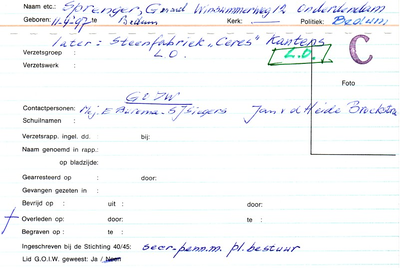 Naam etc.: Sprenger, G Winsumerweg 12 Onderdendam
Geboren: 11-9-07 te Bedum Kerk: Politiek: Bedum
later: Steenfabriek "Ceres" Kantens
Verzetsgroep : L.O. L.O. C
Verzetswerk :
Foto
G & ZW
Contactpersonen: Mej. E Buiema - S J Siegers Jan v d Heide
Schuilnamen :
Verzetsrapp. ingel. dd. bij:
Naam genoemd in rapp.:
op bladzijde:
Gearresteerd op : door:
Gevangen gezeten in :
Bevrijd op : uit : door:
† Overleden op: door: te :
Begraven op : te :
Ingeschreven bij de Stichting 40/45: secr-penn.m. pl. bestuur
Lid G.O.I.W. geweest: Ja / Neen